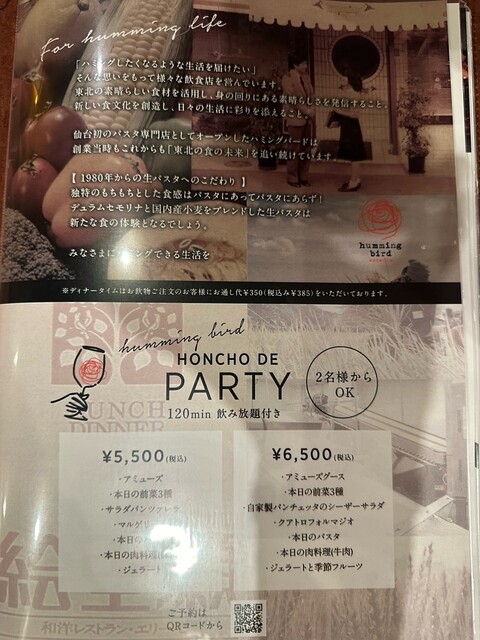 For humming life
「ハミングしたくなるような生活を届けたい」
そんな思いをもって様々な飲食店を営んでいます。
東北の素晴らしい食材を活用し、身の回りにある素晴らしさを発信すること。
新しい食文化を創造し、日々の生活に彩りを添えること。
仙台初のパスタ専門店としてオープンしたハミングバードは
創業当時もこれからも「東北の食の未来」を追い続けています。
【 1980年からの生パスタへのこだわり 】
独特のもちもちとした食感はパスタにあってパスタにあらず！
デュラムセモリナと国内産小麦をブレンドした生パスタは
新たな食の体験となるでしょう。
みなさまにハミングできる生活を
humming
bird
※ディナータイムはお飲物ご注文のお客様にお通し代¥350(税込み¥385)をいただいております。
humming bird
HONCHO DE
PARTY
120min 飲み放題付き
2名様から
OK
LUNCH
DINNER
¥5,500(税込)
・アミューズ
・本日の前菜3種
・サラダパンツァネラ
・マルゲリ
・本日の
・本日の肉料理
・ジェラート
¥6,500(税込)
・アミューズグース
・本日の前菜3種
・自家製パンチェッタのシーザーサラダ
・クアトロフォルマジオ
・本日のパスタ
・本日の肉料理(牛肉)
・ジェラートと季節フルーツ
和洋レストラン・エリー
ご予約は
QRコードから